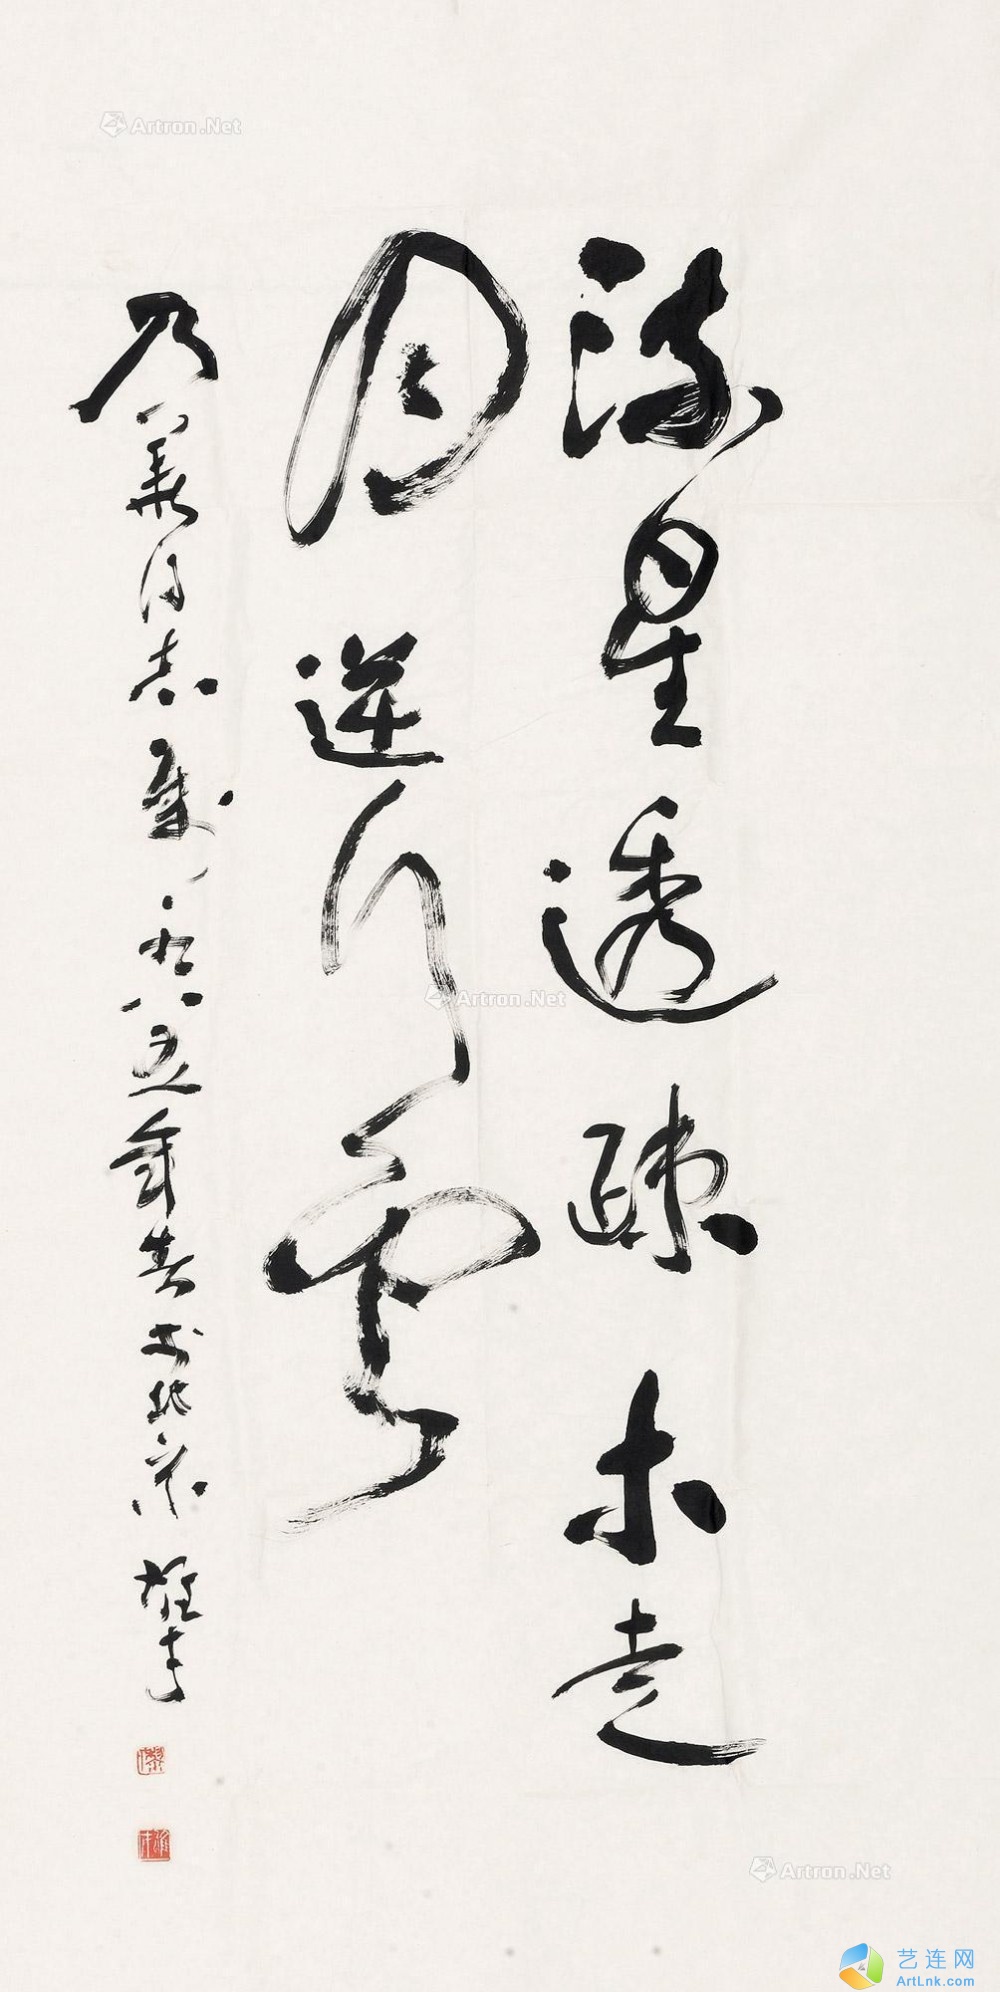 疏星透疏木走
月逆行云
乃义同志教一九八五年春于北京雄才
Artron.Net
Artron.Net
Artron.Net
艺连网
ArtLnk.com